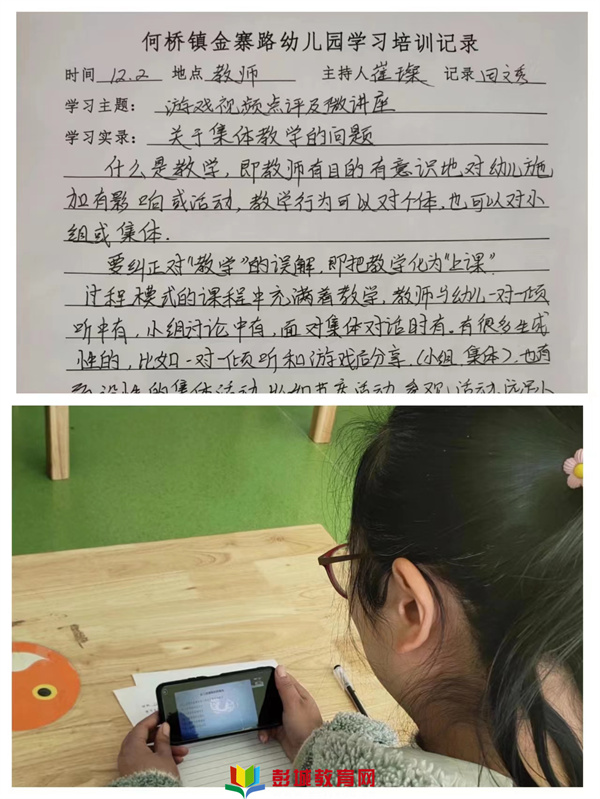 何桥镇金寨路幼儿园学习培训记录
时间 12.2 地点 教师 主持人 崔璨 记录 田文秀
学习主题: 游戏视频点评及微讲座
学习实录: 关于集体教学的问题
什么是教学,即教师有目的有意识地对幼儿施
加有影响或活动,教学行为可以对个体,也可以对小
组或集体.
要纠正对“教学”的误解,即把教学化为“上课”.
过程模式的课程中充满着教学,教师与幼儿一对一倾
听中有,小组讨论中有,面对集体对话时有。有很多生成
性的,比如一对一倾听和游戏后分享.(小组.集体).也有
设性的集体活动.比如节庆活动.参观活动.
彭城教育网